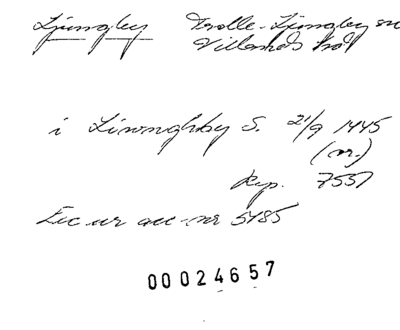 Ljungby Trolle-Ljungby sn
Villands hd
i Liwnghby S. 21/9 1445
(nr.)
Rep. 7557
Exc ur acc-nr 5485
00024657